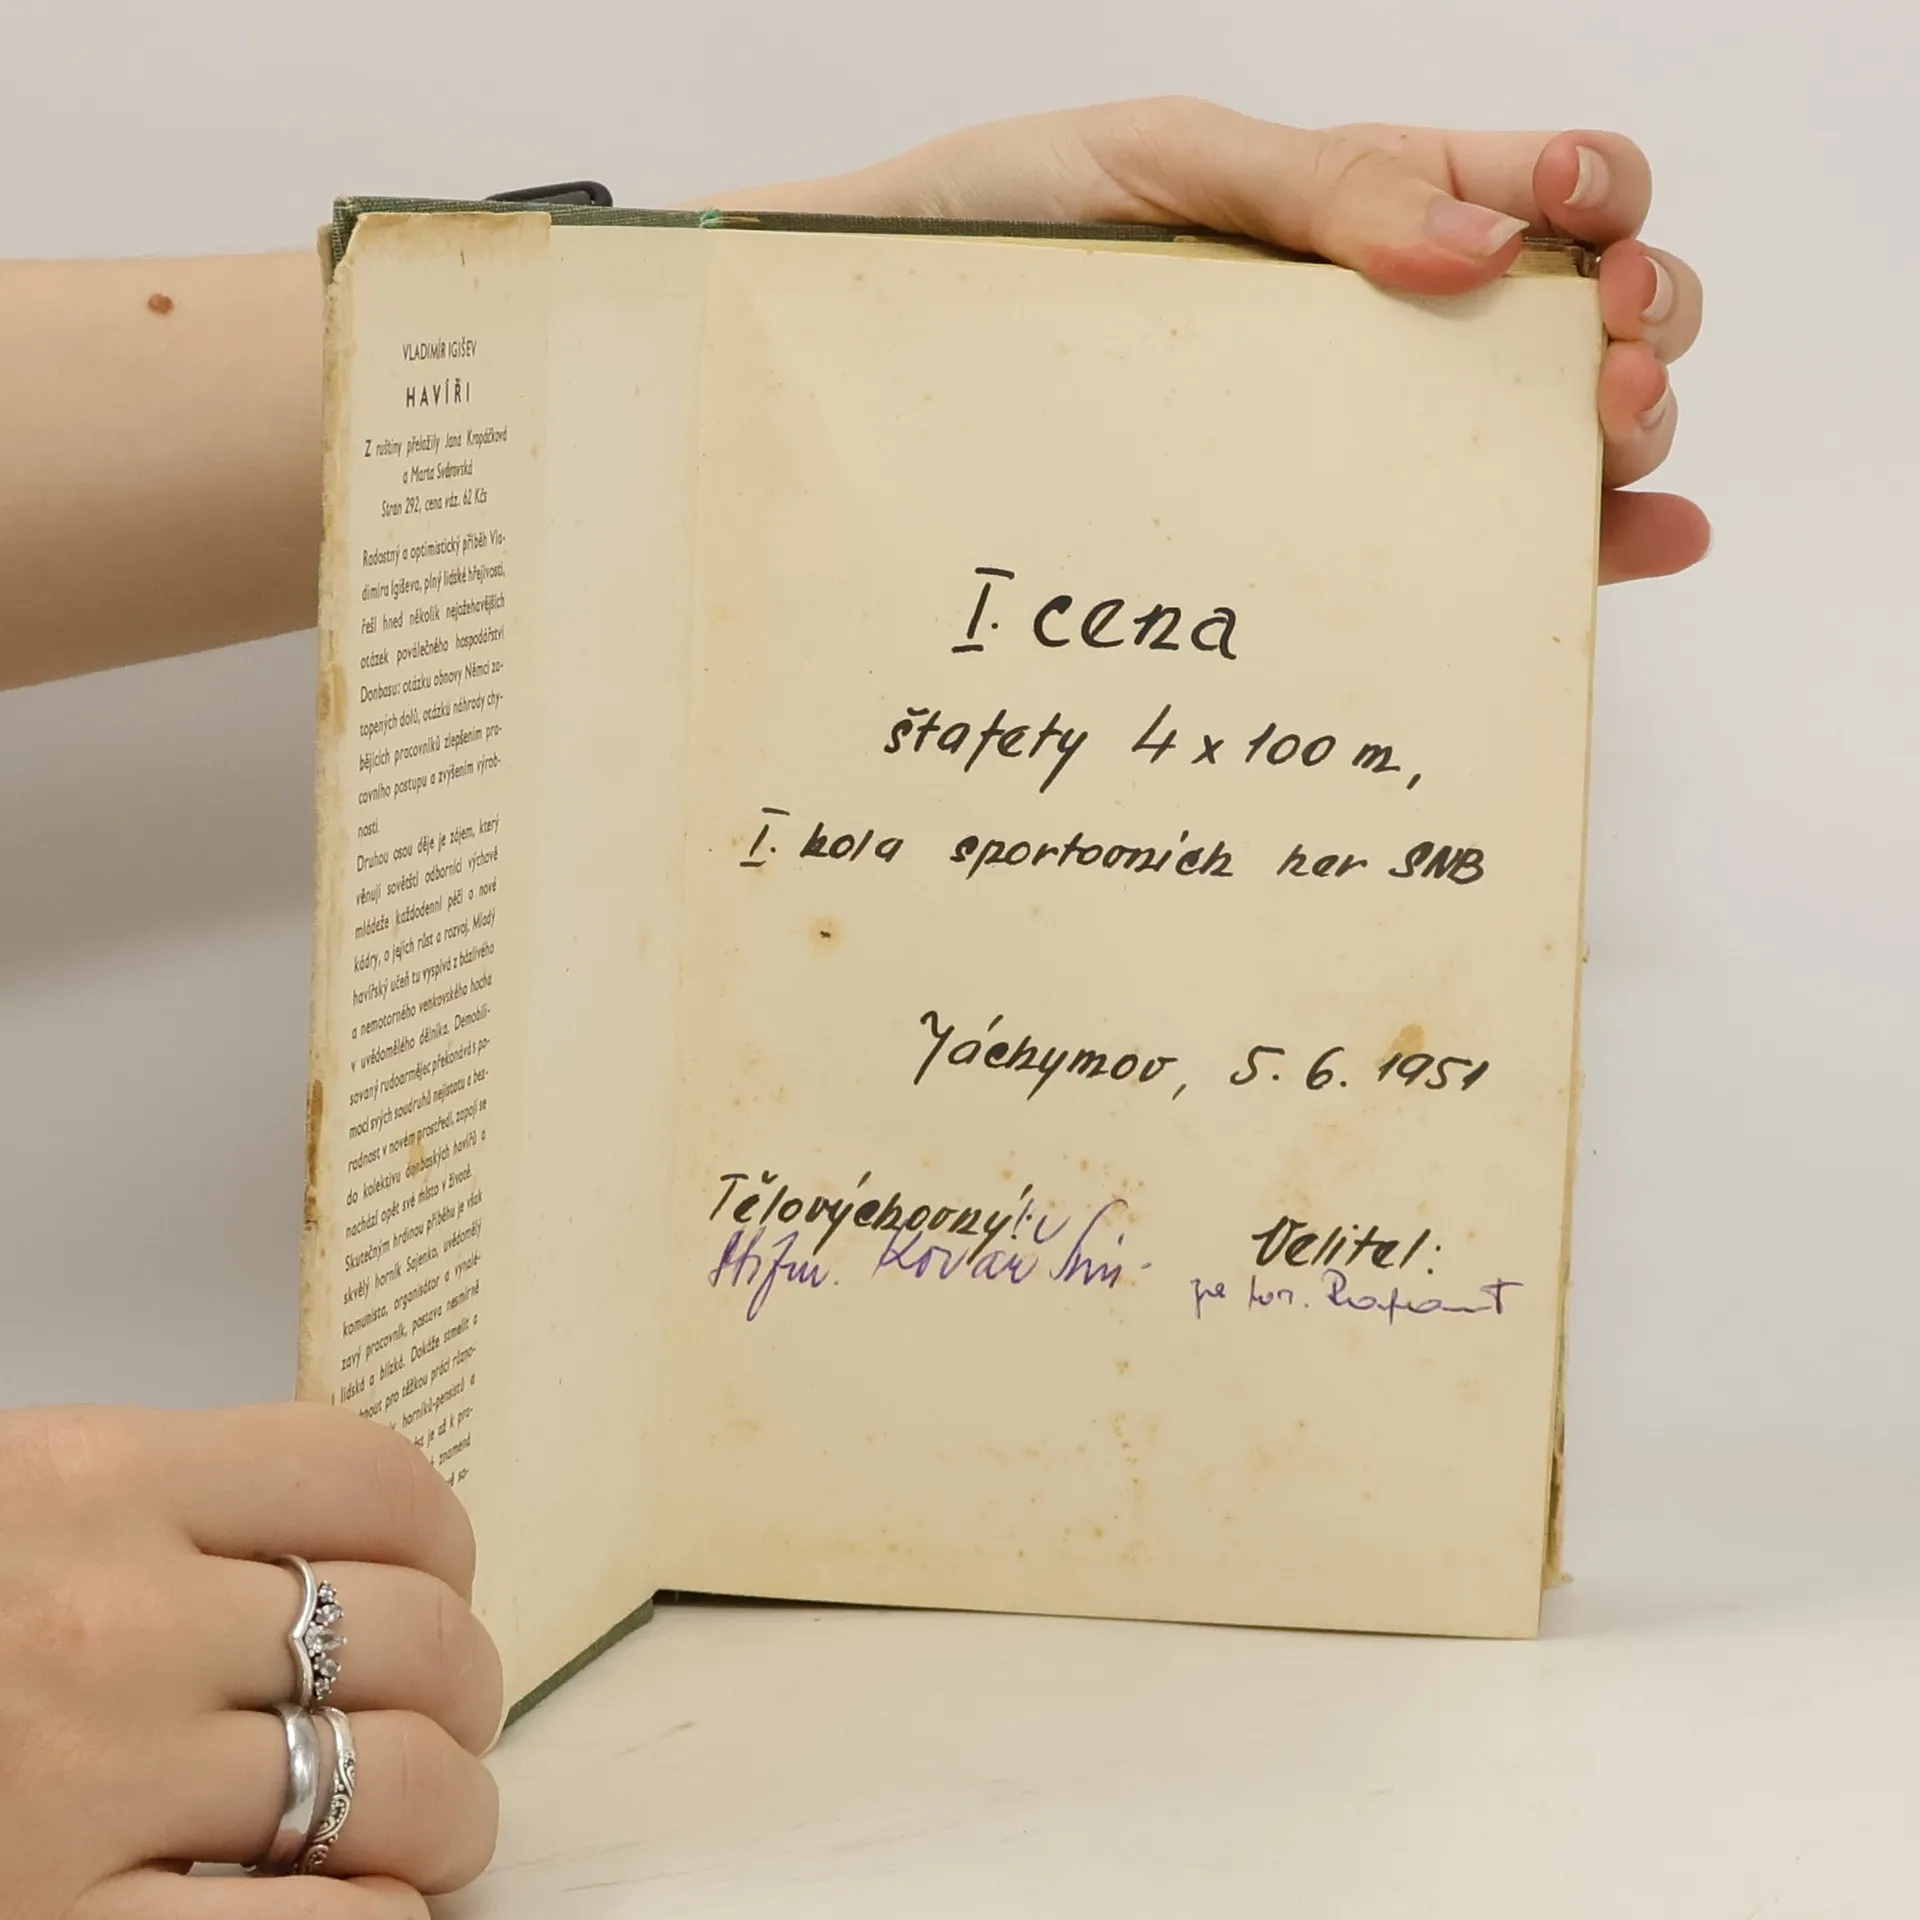 VLADIMÍR IGIŠEV
HAVÍŘI
Z ruštiny přeložily Jana Kropáčková
a Marta Svárovská
Stran 292, cena váz. 62 Kčs
Radostný a optimistický příběh Vla-
dimíra Igiševa, plný lidské hřejivosti,
řeší hned několik nejožehavějších
otázek poválečného hospodářství
Donbasu: otázku obnovy Němci za-
topených dolů, otázku náhrady chy-
bějících pracovníků zlepšením pra-
covního postupu a zvýšením výrob-
nosti.
Druhou osou děje je zájem, který
věnují sovětští odborníci výchově
mládeže každodenní péčí o nové
kádry, o jejich růst a rozvoj. Mladý
havířský učeň tu vyspívá z bázlivého
a nemotorného venkovského hocha
v uvědomělého dělníka. Demobili-
sovaný rudoarmějec překonává s po-
mocí svých soudruhů nejistotu a bez-
radnost v novém prostředí, zapojí se
do kolektivu donbaských havířů a
nachází opět své místo v životě.
Skutečným hrdinou příběhu je však
skvělý horník Sajenko, uvědomělý
komunista, organisátor a vynalé-
zavý pracovník, postava nesmírně
lidská a blízká. Dokáže stmelit a
pro těžkou práci různo-
horníků-pensistů a
je až k pro-
znamená
so-
I. cena
štafety 4 x 100 m,
I. kola sportovních her SNB
Jáchymov, 5. 6. 1951
Tělovýchovný:
Velitel:
Kovář